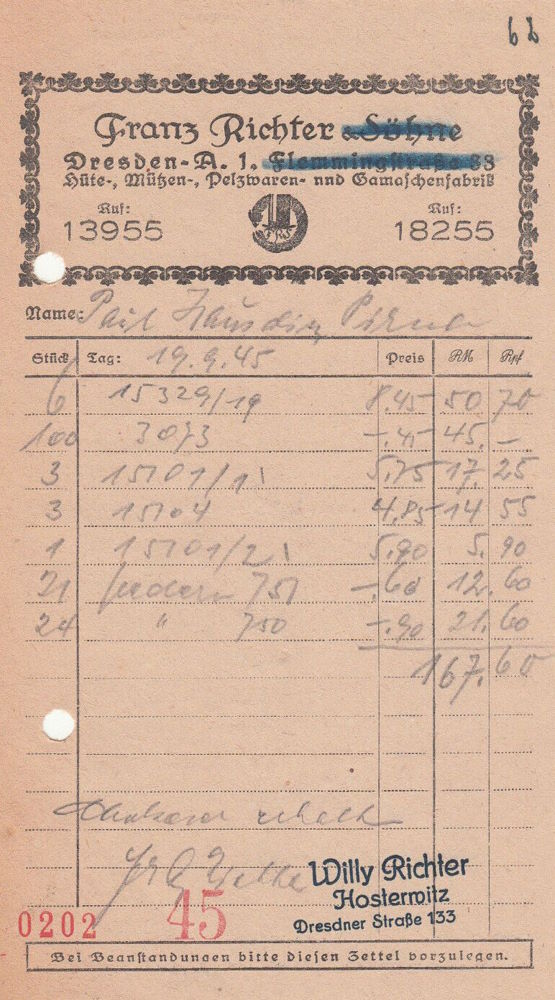 62
Franz Richter & Söhne
Dresden-A. 1, Flemmingstraße 33
Hüte-, Mützen-, Pelzwaren- und Gamaschenfabrik
Ruf: Ruf:
13955 18255
Name: Pirna
Stück Tag: 19.9.45 Preis RM Rpf
6 15329/19 8.45 50 70
100 3073 -.45 45. -
3 15101/1 5.75 17. 25
3 15104 4.85 14 55
1 15101/2 5.90 5. 90
21 Federn 751 -.60 12. 60
24 " 750 -.90 21. 60
167.60
erhalten
Willy Richter
Hosterwitz
Dresdner Straße 133
0202 45
Bei Beanstandungen bitte diesen Zettel vorzulegen.